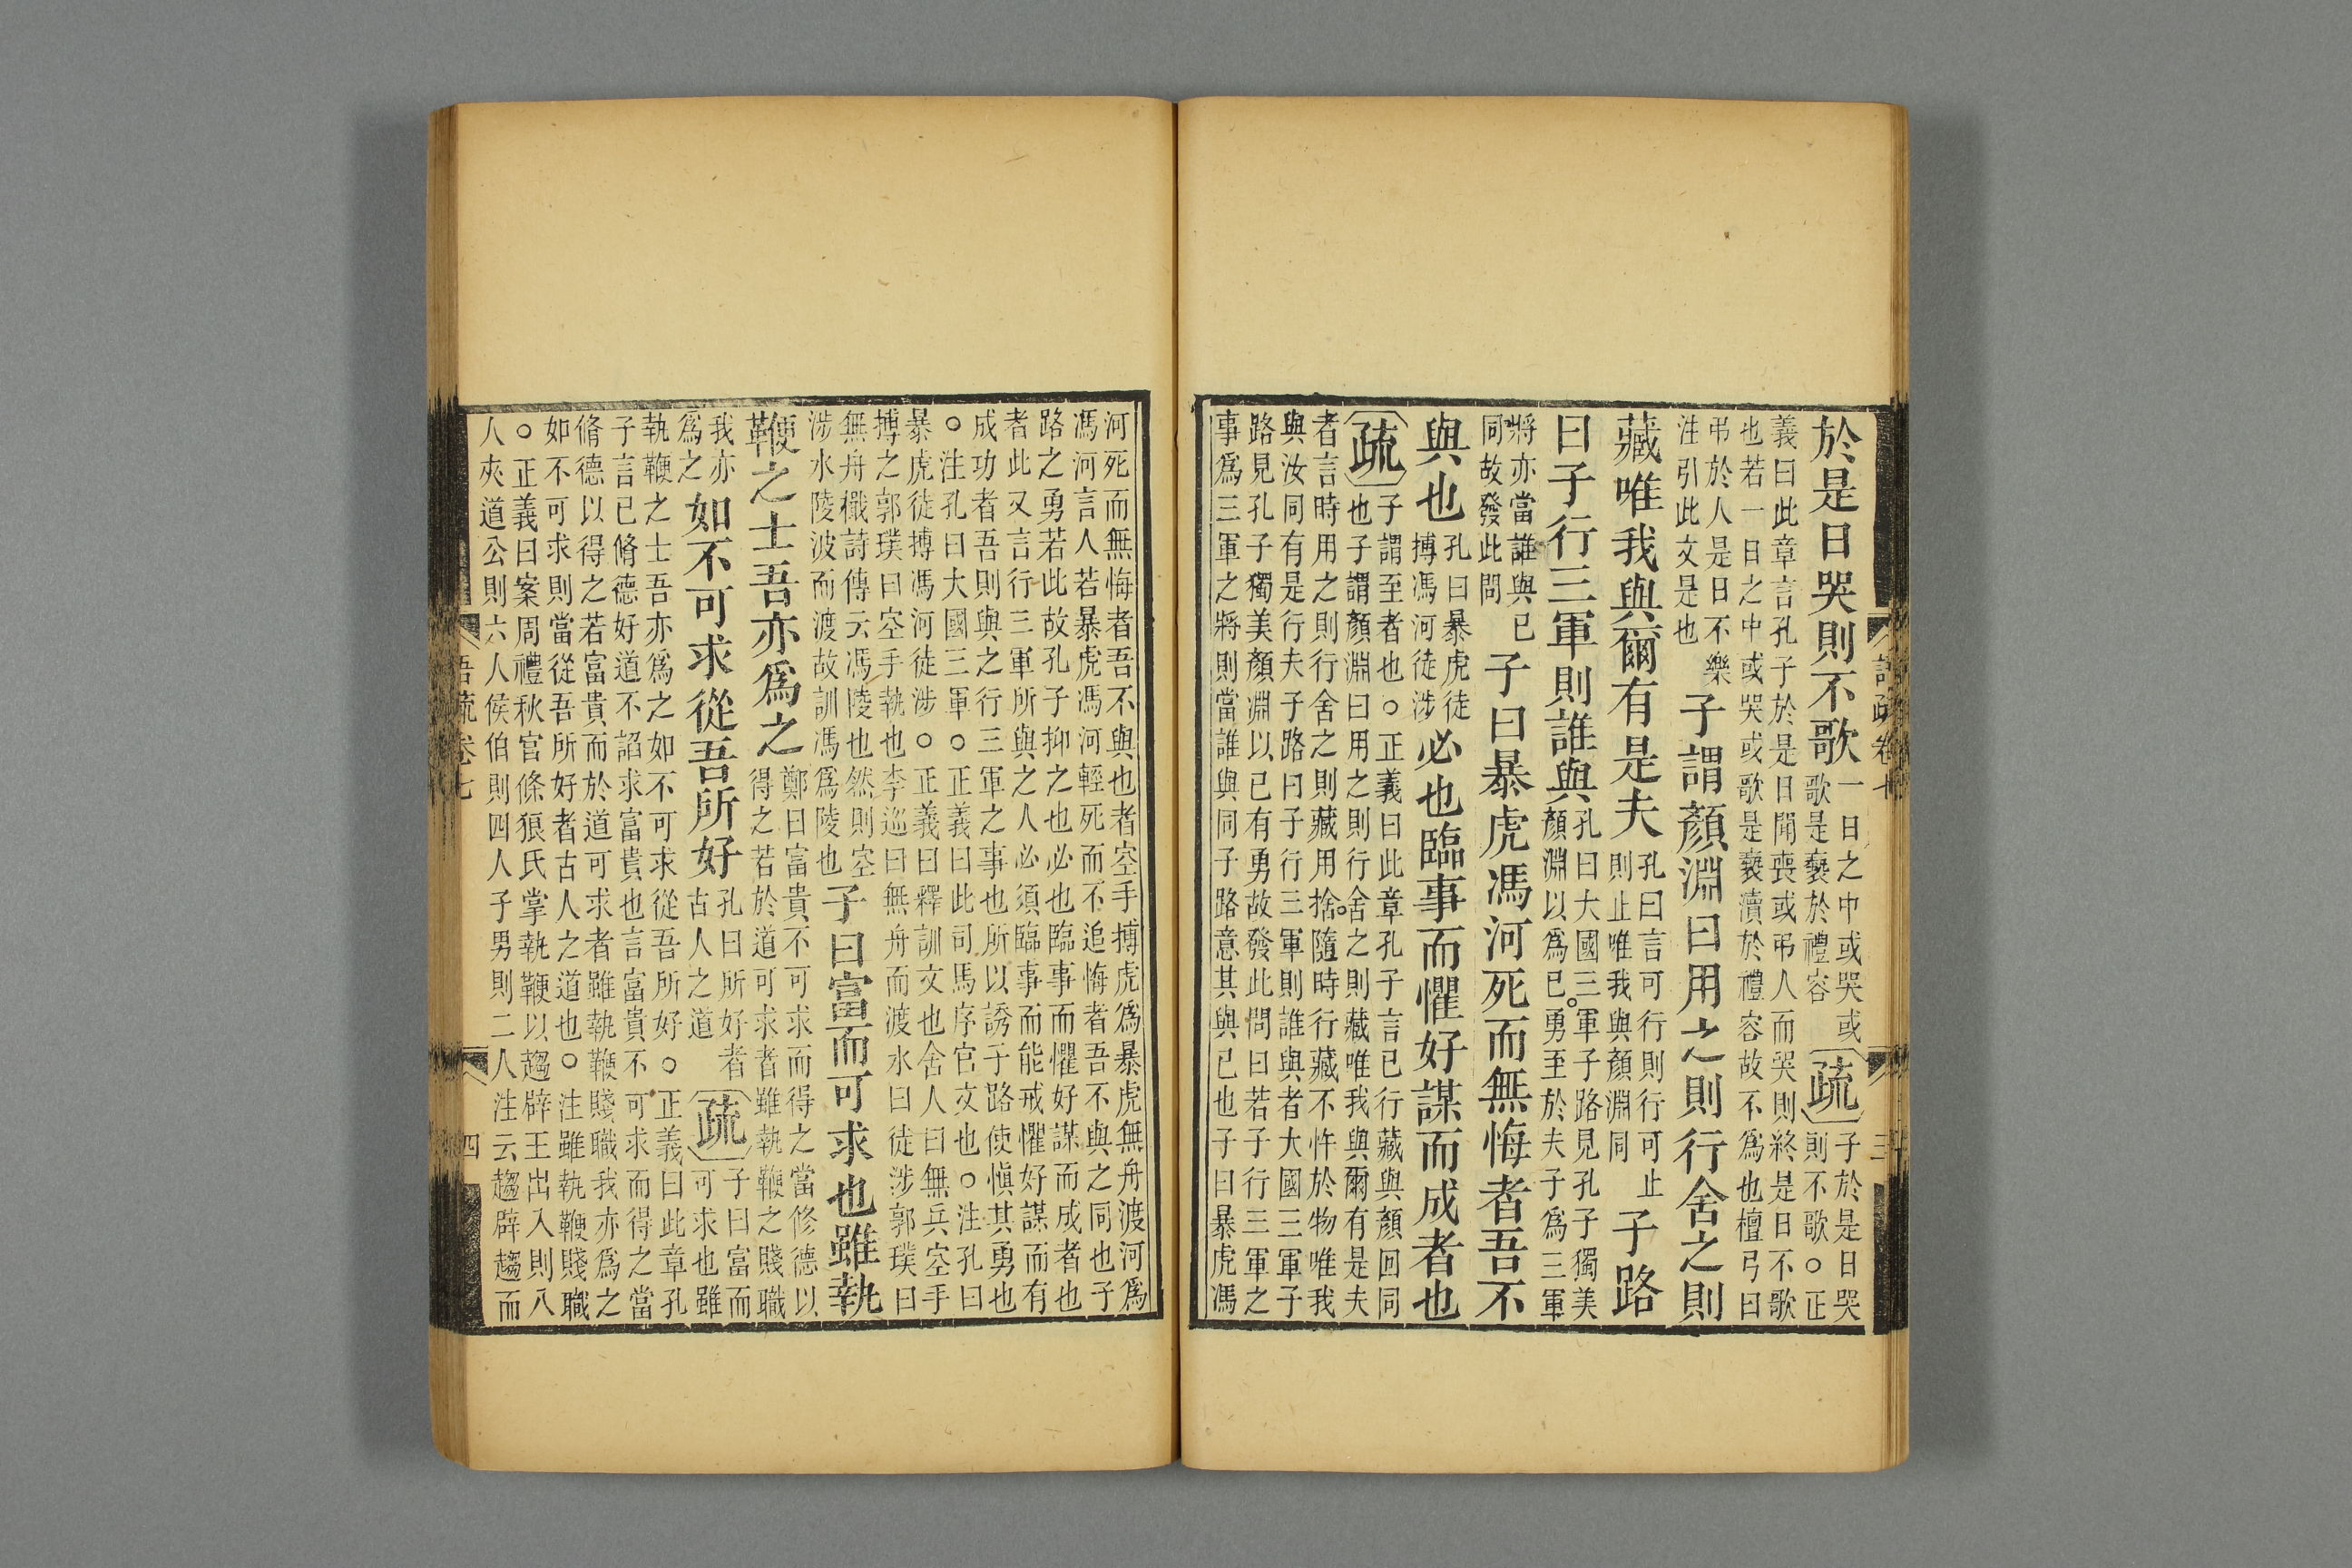 於是日哭則不歌一日之中或哭或歌是褻於禮容疏子於是日哭則不歌○正
義曰此章言孔子於是日聞喪或弔人而哭則終是日不歌
也若一日之中或哭或歌是褻瀆於禮容故不爲也檀弓曰
弔於人是日不樂注引此文是也子謂顏淵曰用之則行舍之則
藏唯我與爾有是夫孔曰言可行則行可止則止唯我與顏淵同子路
曰子行三軍則誰與孔曰大國三軍子路見孔子獨美顏淵以爲己勇至於夫子爲三軍
將亦當誰與己同故發此問子曰暴虎馮河死而無悔者吾不
與也孔曰暴虎徒搏馮河徒涉必也臨事而懼好謀而成者也
疏子謂至者也○正義曰此章孔子言己行藏與顏回同也子謂顏淵曰用之則行舍之則藏唯我與爾有是夫
者言時用之則行舍之則藏用捨隨時行藏不忤於物唯我
與汝同有是行夫子路曰子行三軍則誰與者大國三軍子
路見孔子獨美顏淵以己有勇故發此問曰若子行三軍之
事爲三軍之將則當誰與同子路意其與己也子曰暴虎馮
語疏卷七
三
河死而無悔者吾不與也者空手搏虎爲暴虎無舟渡河爲
馮河言人若暴虎馮河輕死而不追悔者吾不與之同也子
路之勇若此故孔子抑之也必也臨事而懼好謀而成者也
者此又言行三軍所與之人必須臨事而能戒懼好謀而有
成功者吾則與之行三軍之事也所以誘子路使愼其勇也
○注孔曰大國三軍○正義曰此司馬序官文也○注孔曰
暴虎徒搏馮河徒涉○正義曰釋訓文也舍人曰無兵空手
搏之郭璞曰空手執也李巡曰無舟而渡水曰徒涉郭璞曰
無舟檝詩傳云馮陵也然則空涉水陵波而渡故訓馮爲陵也子曰富而可求也雖執
鞭之士吾亦爲之鄭曰富貴不可求而得之當修德以得之若於道可求者雖執鞭之賤職
我亦爲之如不可求從吾所好孔曰所好者古人之道疏子曰富而可求也雖
執鞭之士吾亦爲之如不可求從吾所好○正義曰此章孔
子言己脩德好道不諂求富貴也言富貴不可求而得之當
脩德以得之若富貴而於道可求者雖執鞭賤職我亦爲之
如不可求則當從吾所好者古人之道也○注雖執鞭賤職
○正義曰案周禮秋官條狼氏掌執鞭以趨辟王出入則八
人夾道公則六人侯伯則四人子男則二人注云趨辟趨而
語疏卷七
四